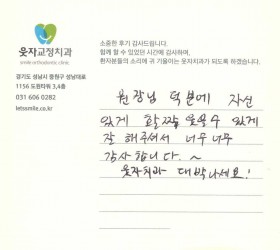 웃자교정치과
smile orthodontic clinic
경기도 성남시 중원구 성남대로
1156 도원타워 3,4층
031 606 0282
letssmile.co.kr
소중한 후기 감사드립니다.
함께 할 수 있었던 시간에 감사하며,
환자분들의 소리에 귀 기울이는 웃자치과가 되도록 하겠습니다.
원장님 덕분에 자신
있게 활짝 웃을수 있게
잘 해주셔서 너무너무
감사합니다.~
웃자치과 대박나세요!